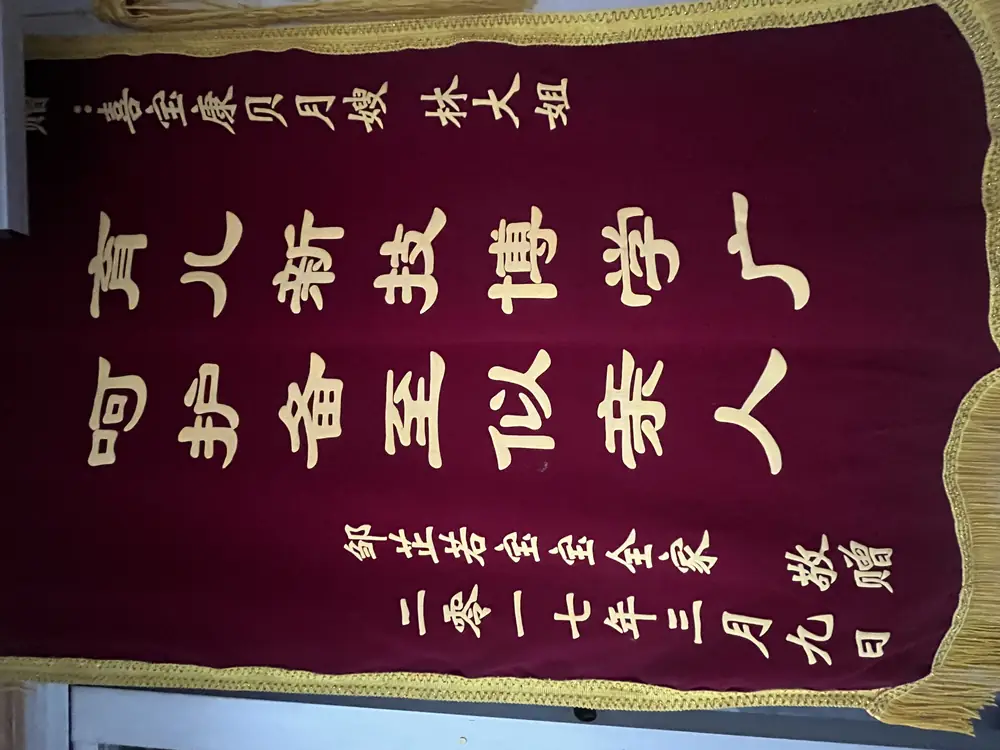 赠：喜宝康贝月嫂 林大姐
育儿新技博学广
呵护备至似亲人
邹芷若宝宝全家 敬赠
二零一七年三月九日